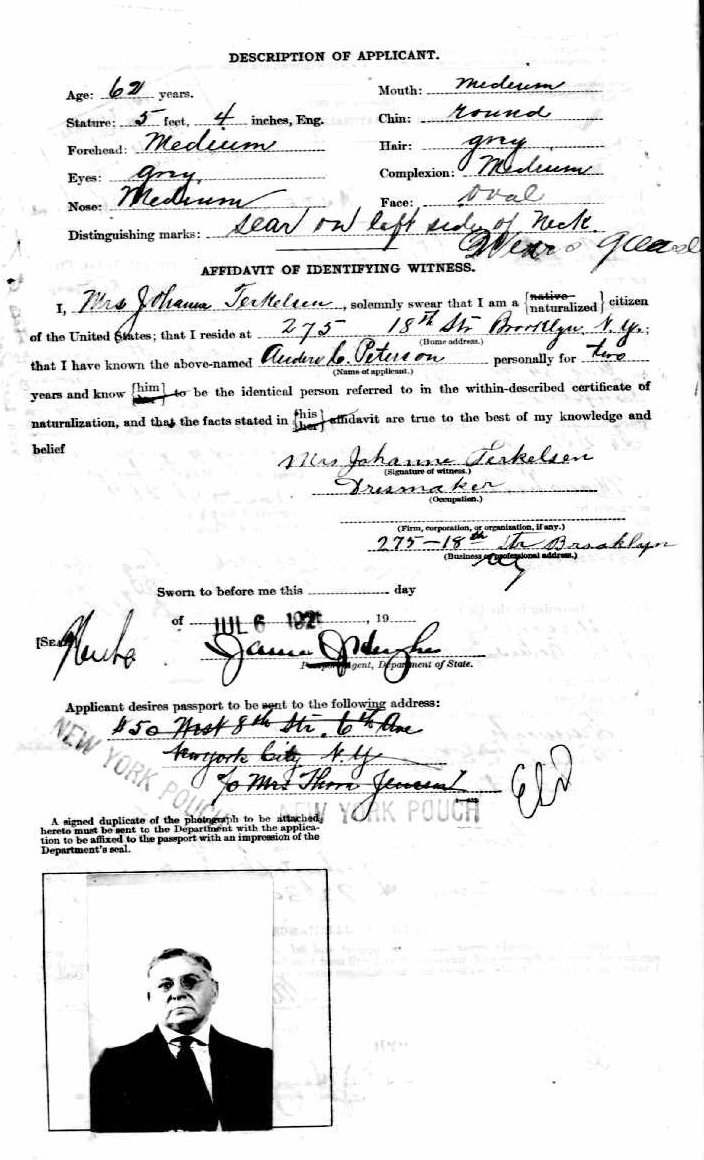 DESCRIPTION OF APPLICANT.
Age: 62 years.
Mouth: medium
Stature: 5 feet, 4 inches, Eng.
Chin: round
Forehead: Medium
Hair: grey
Eyes: grey
Complexion: Medium
Nose: Medium
Face: oval
Distinguishing marks: scar on left side of Neck.
Wears
AFFIDAVIT OF IDENTIFYING WITNESS.
I, Mrs Johanna Terkelsen, solemnly swear that I am a {native naturalized} citizen
of the United States; that I reside at 275 18th Str Brooklyn N.Y.;
(Home address.)
that I have known the above-named Anders C. Peterson personally for two
(Name of applicant.)
years and know {him her} to be the identical person referred to in the within-described certificate of
naturalization, and that the facts stated in {his her} affidavit are true to the best of my knowledge and
belief
Mrs Johanne Terkelsen
(Signature of witness.)
Dresmaker
(Occupation.)
(Firm, corporation, or organization, if any.)
275-18th Str Brooklyn
(Business or professional address.)
NY
Sworn to before me this day
of JUL 6 192, 19
[SEAL]
Passport Agent, Department of State.
Applicant desires passport to be sent to the following address:
#50 West 8th Str. 6th Ave
New york City N.Y
c/o Mrs Thora Jensen
NEW YORK POUCH
NEW YORK POUCH
A signed duplicate of the photograph to be attached
hereto must be sent to the Department with the applica-
tion to be affixed to the passport with an impression of the
Department's seal.